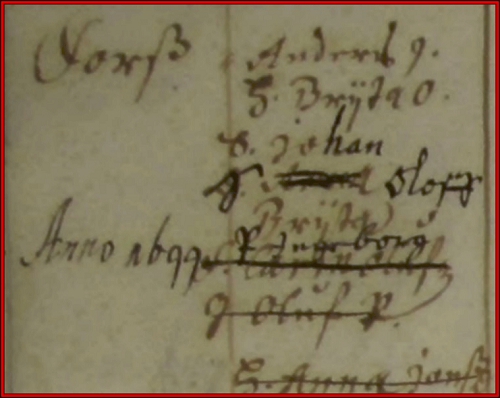 Forß Anders J.
H. Brijta O.
S. Johan
S. Oloff
Brijta
Anno 1699 P Ingeborg
J Oluf P.
H. Anna Janß